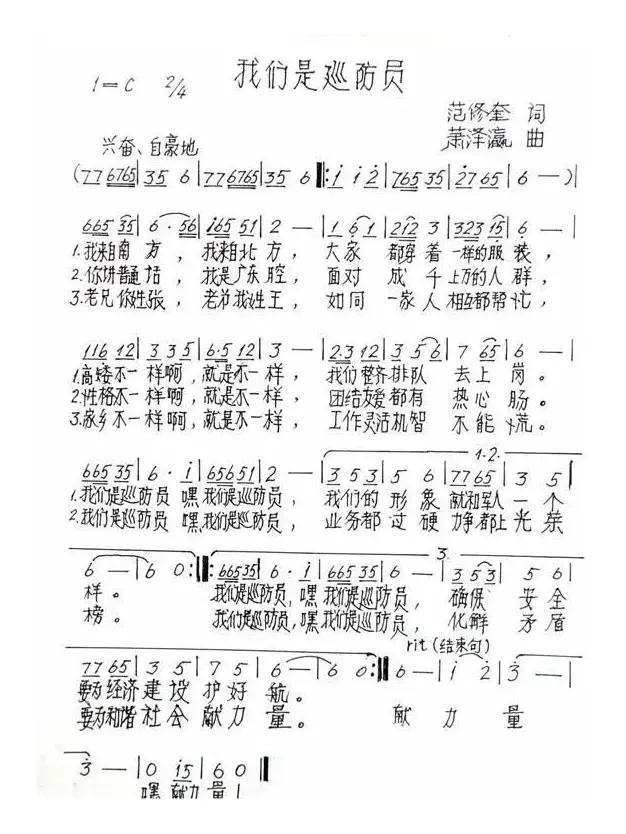 我们是巡防员
1=C 2/4
范修奎 词
萧泽瀛 曲
兴奋、自豪地
(77 6765|35 6|77 6765|35 6‖:i i 2|765 35|2765|6 —)|
665 35|6·56|i65 51|2 —|1 61|212 3|323 15|6 —|
1.我来自南方，我来自北方，大家都穿着一样的服装，
2.你讲普通话，我是广东腔，面对成千上万的人群，
3.老兄你姓张，老弟我姓王，如同一家人相互都帮忙，
116 12|3 35|6·5 12|3 —|2·3 12|3 56|7 65|6 —|
1.高矮不一样啊，就是不一样，我们整齐排队去上岗。
2.性格不一样啊，就是不一样，团结友爱都有热心肠。
3.家乡不一样啊，就是不一样，工作灵活机智不能慌。
1.2.
665 35|6·i|656 51|2 —|3 53|5 6|77 65|3 5|
1.我们是巡防员嘿我们是巡防员，我们的形象就和军人一个
2.我们是巡防员嘿我们是巡防员，业务都过硬力争都上光荣
3.
6 —|6 0:‖:665 35|6·i|665 35|6 —|3 53|5 6|
样。我们是巡防员，嘿我们是巡防员，确保安全
榜。我们是巡防员，嘿我们是巡防员，化解矛盾
rit(结束句)
77 65|3 5|7 5|6 —|6 0:‖6 —|i 2|3 —|
要为经济建设护好航。
要为和谐社会献力量。献力量
3 —|0 i5|6 0‖
嘿献力量！